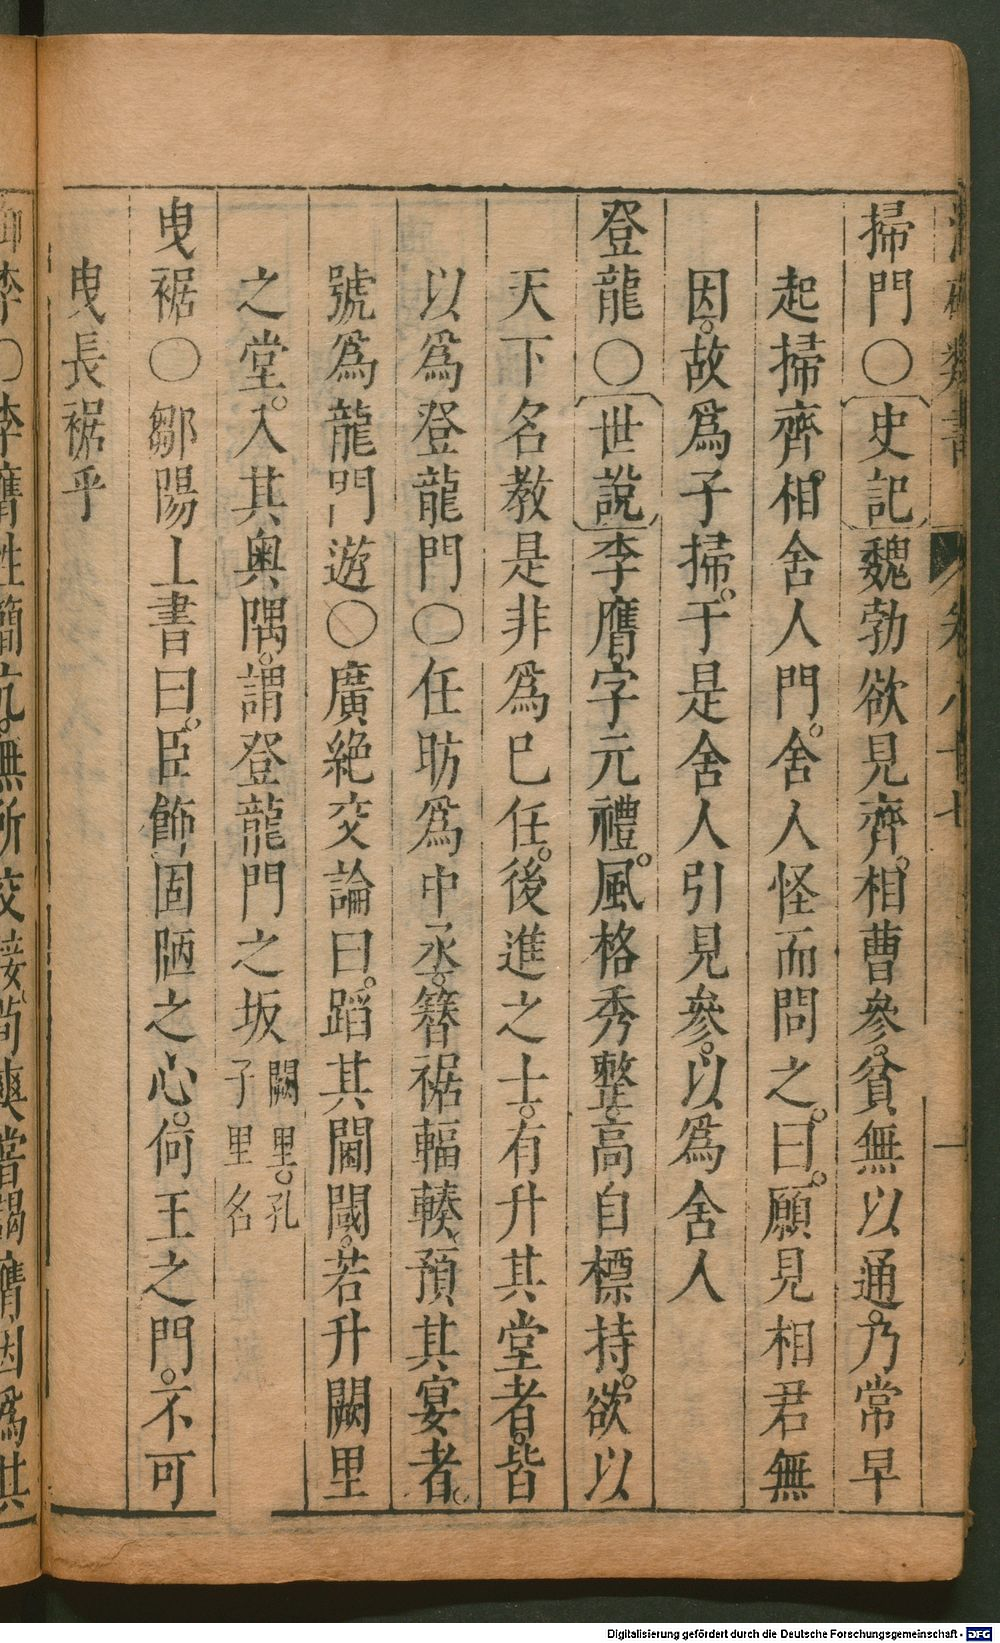 卷八十七
掃門○史記魏勃欲見齊。相曹參。貧無以通。乃常早
起掃齊。相舍人門。舍人怪而問之。曰。願見相君無
因。故爲子掃。于是舍人引見參。以爲舍人
登龍○世說李膺字元禮。風格秀整。高自標持。欲以
天下名教是非爲巳任。後進之士。有升其堂者。皆
以爲登龍門○任昉爲中丞。簪裾輻輳。預其宴者。
號爲龍門遊○廣絶交論曰。蹈其閫閾。若升闕里
之堂。入其奥隅。謂登龍門之坂闕里。孔
子里名
曳裾○鄒陽上書曰。臣飾固陋之心。何王之門。不可
曳長裾乎
御李○李膺性簡亢。無所交接。荀爽嘗謁膺。因爲其
Digitalisierung gefördert durch die Deutsche Forschungsgemeinschaft - DFG